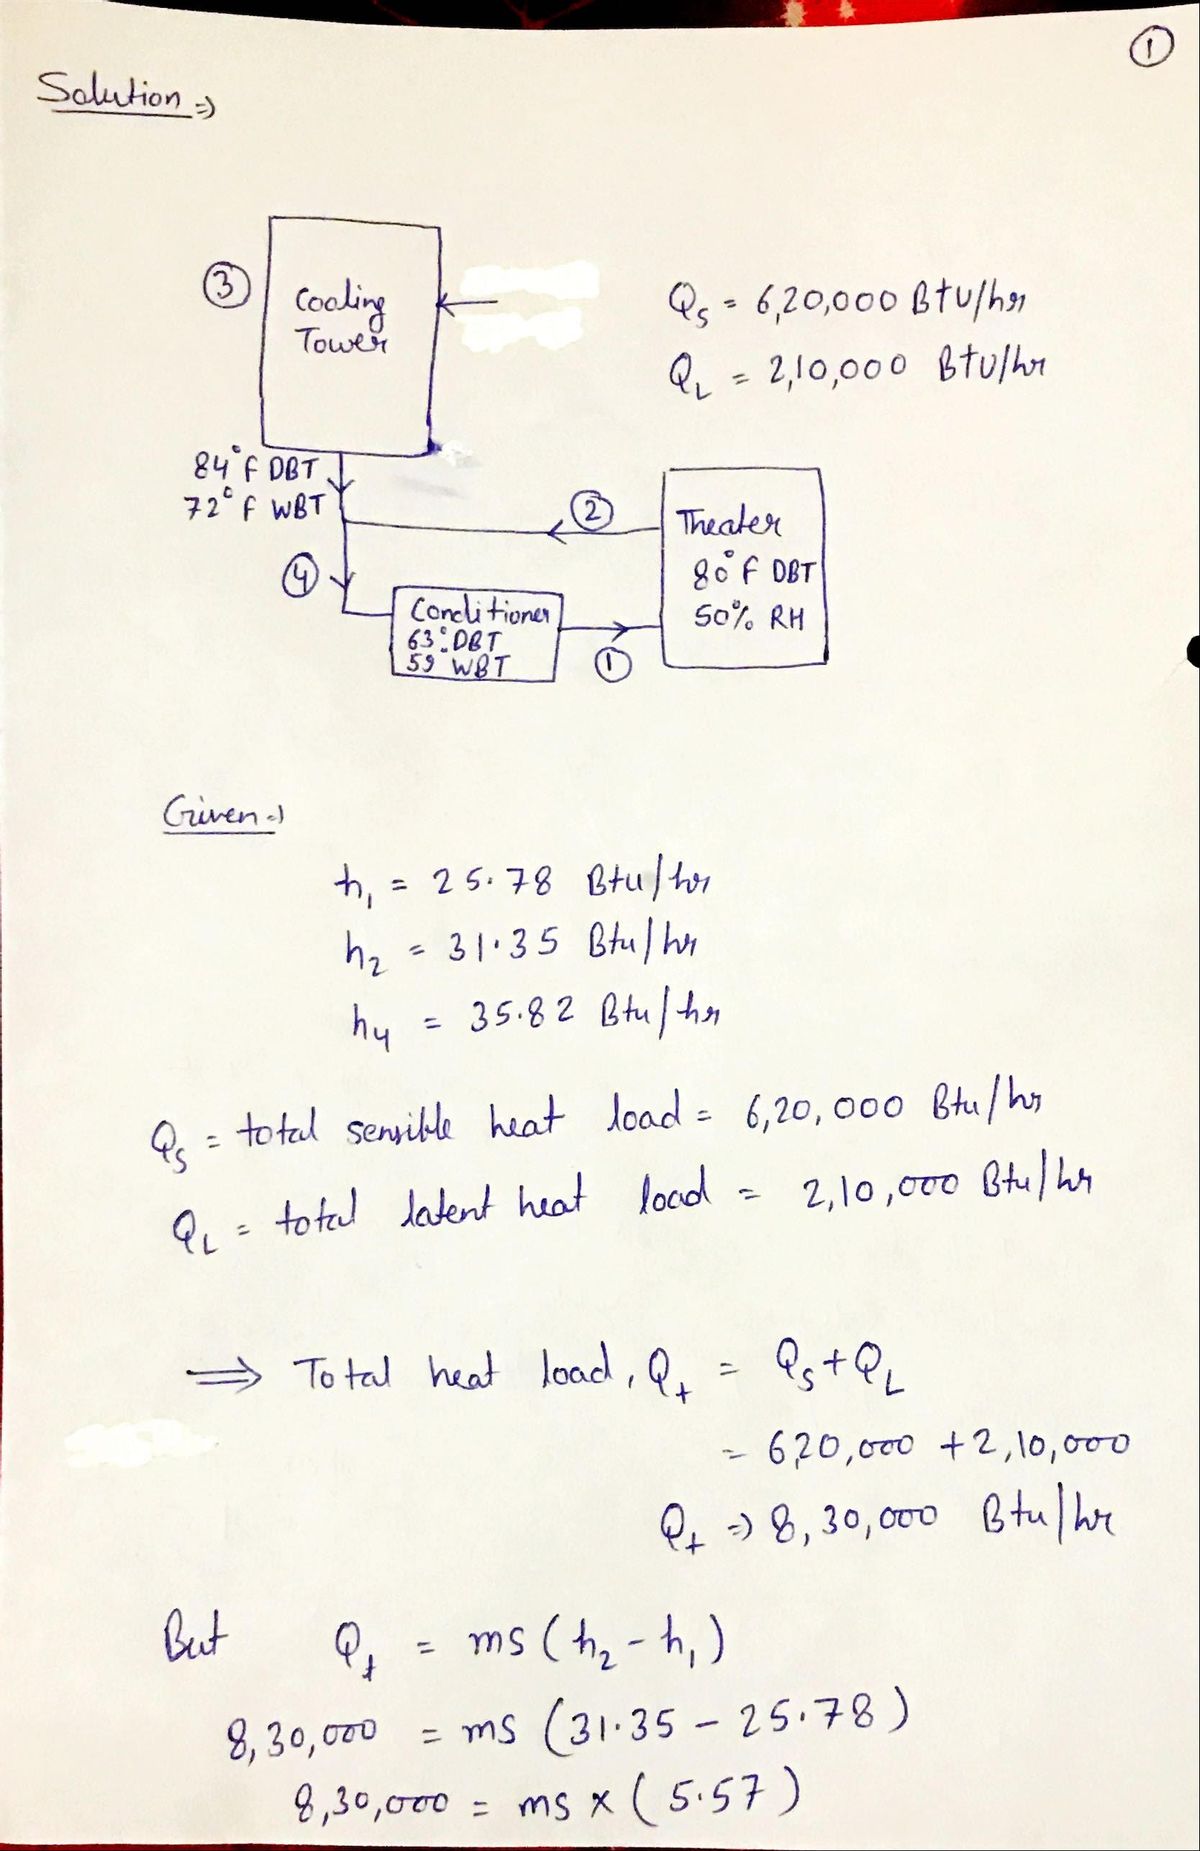 ①
Solution ⇒
③
Cooling
Tower
Qs = 6,20,000 Btu/hr
QL = 2,10,000 Btu/hr
84°F DBT
72°F WBT
②
Theater
80°F DBT
50% RH
④
Conditioner
63° DBT
59 WBT
①
Given ⇒
h₁ = 25.78 Btu/hr
h₂ = 31.35 Btu/hr
h₄ = 35.82 Btu/hr
Qs = total sensible heat load = 6,20,000 Btu/hr
QL = total latent heat load = 2,10,000 Btu/hr
⇒ Total heat load, Qt = Qs + QL
= 6,20,000 + 2,10,000
Qt ⇒ 8,30,000 Btu/hr
But Qt = ms (h₂ - h₁)
8,30,000 = ms (31.35 - 25.78)
8,30,000 = ms x (5.57)